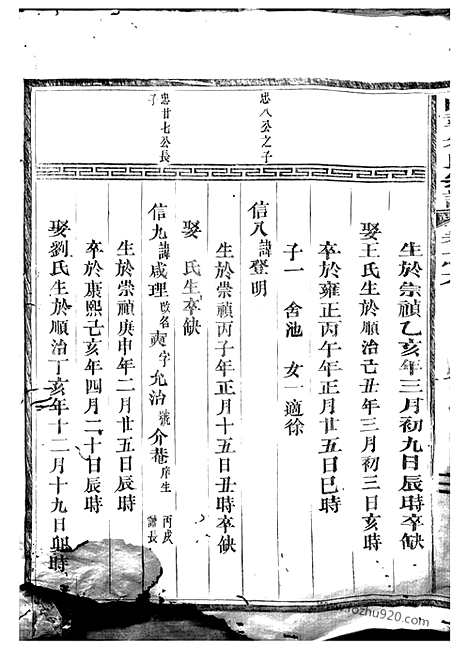 生於崇禎乙亥年三月初九日辰時卒缺
娶王氏生於順治己丑年三月初三日亥時
卒於雍正丙午年正月廿五日巳時
子一 舍池 女一適徐
忠八公之子
信八諱登明
生於崇禎丙子年正月十五日丑時卒缺
娶 氏生卒缺
忠廿七公長子
信九諱咸理改名奭字允治號介菴庠生丙戌謝長
生於崇禎庚申年二月廿五日辰時
卒於康熙己亥年四月二十日辰時
娶劉氏生於順治丁亥年十二月十九日卯時
www.rozhu920.com